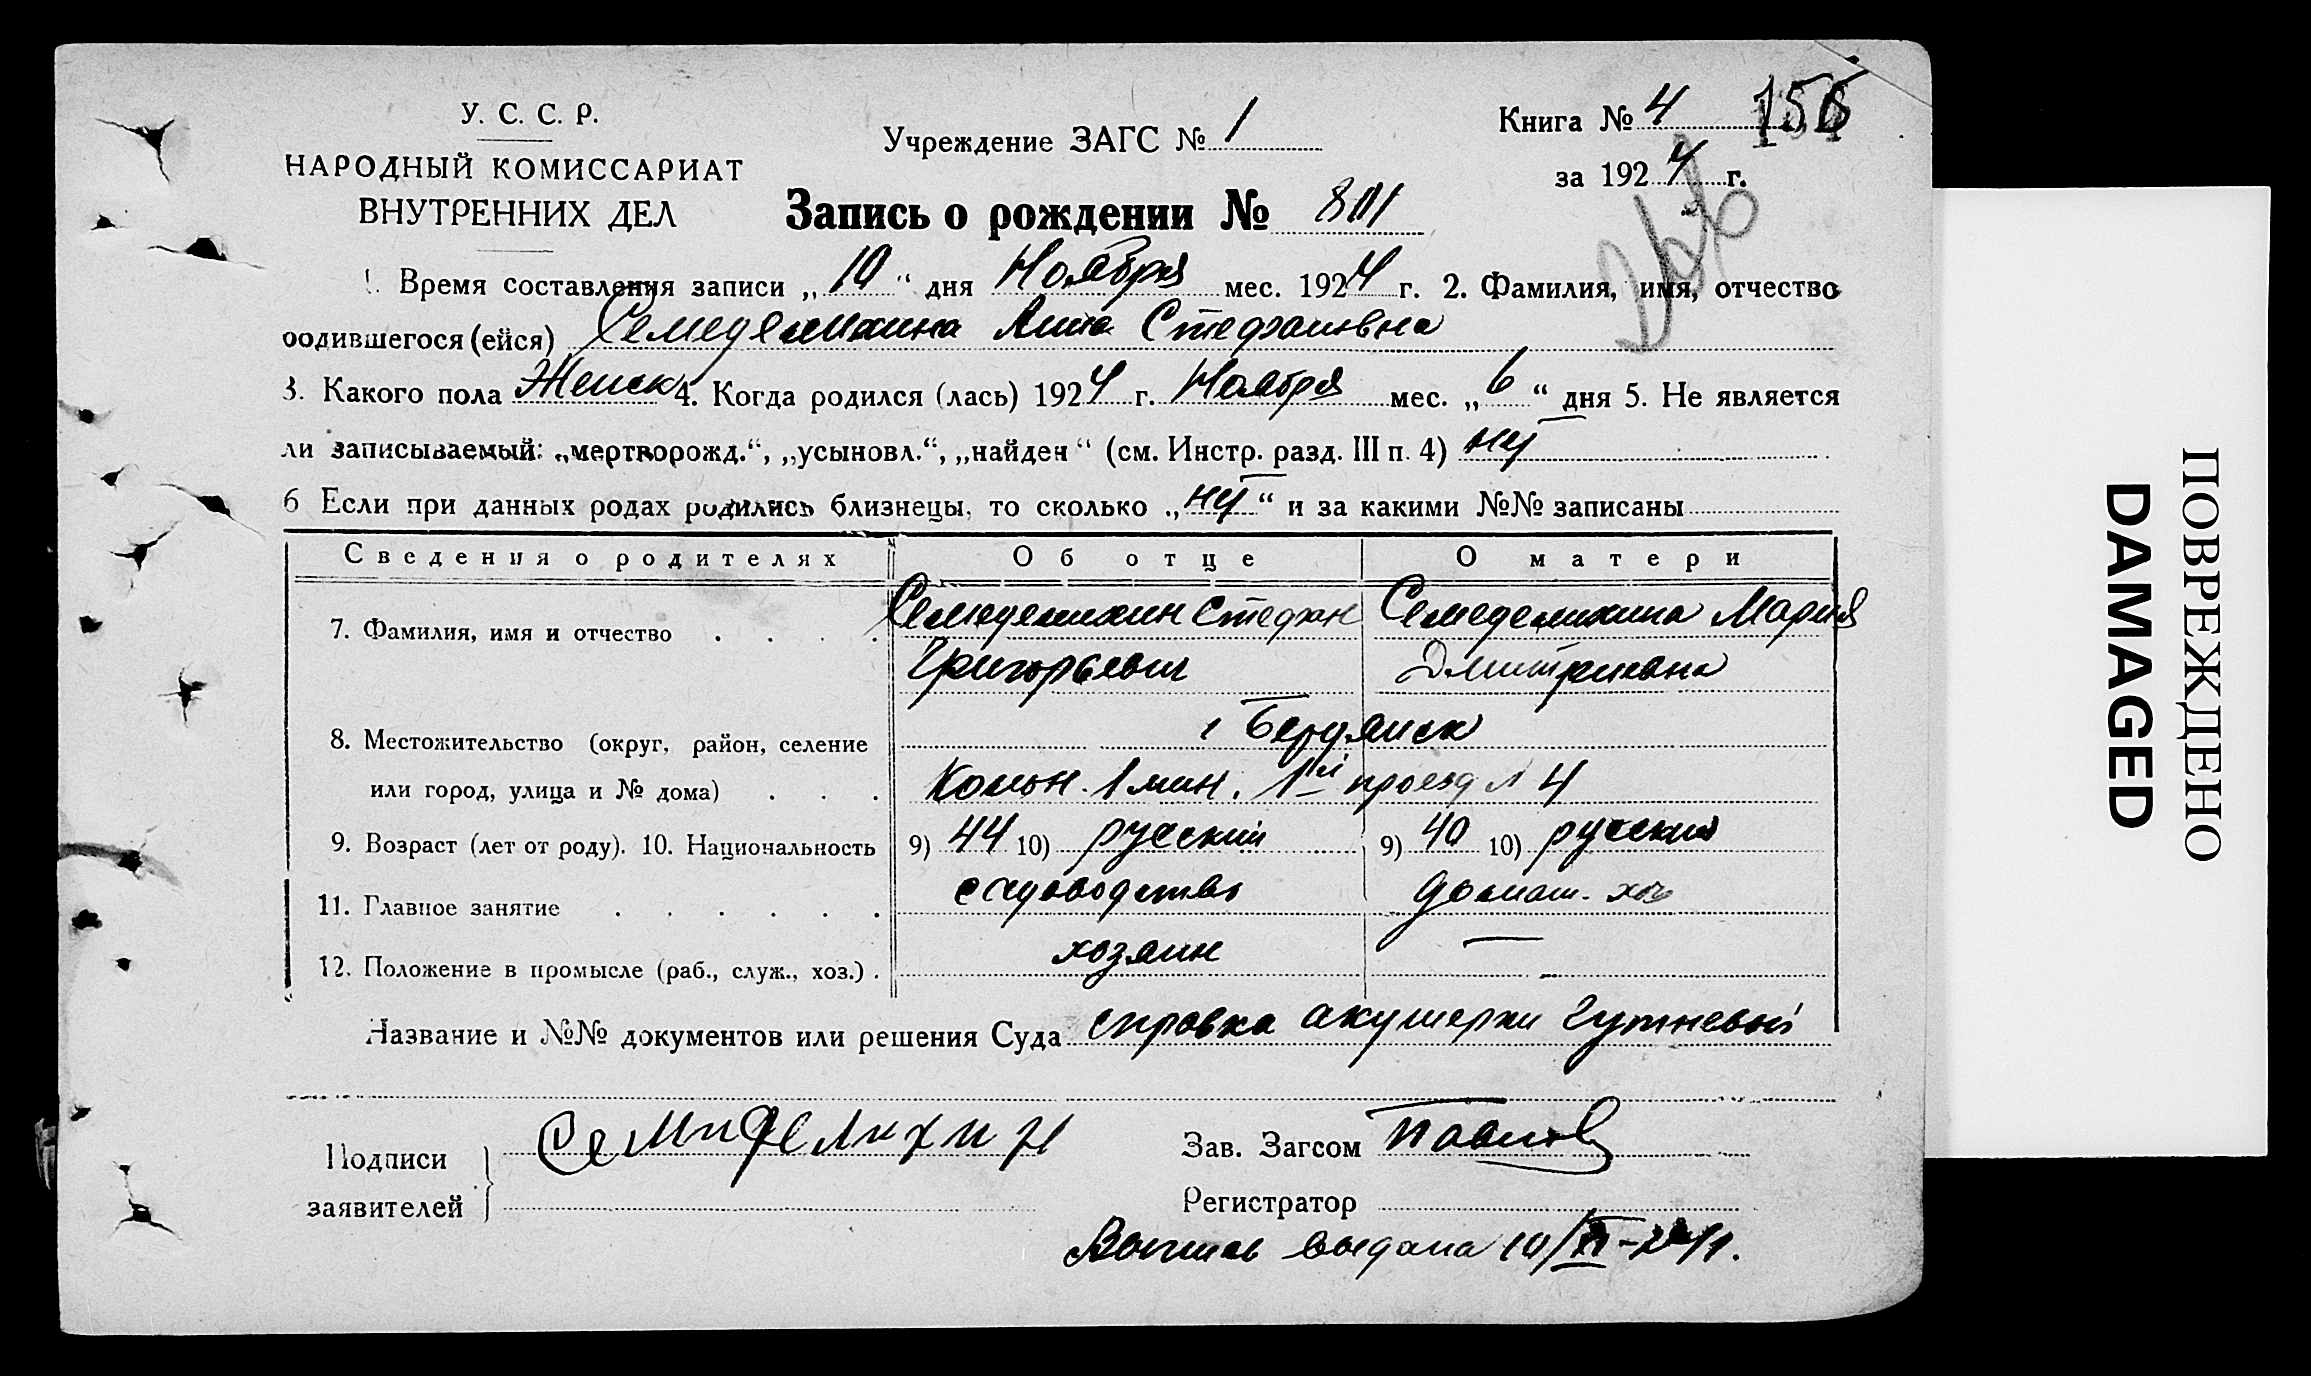 У. С. С. Р.
НАРОДНЫЙ КОМИССАРИАТ
ВНУТРЕННИХ ДЕЛ
Учреждение ЗАГС № 1
Книга № 4
за 1924 г.
Запись о рождении № 801
1. Время составления записи „10“ дня Ноября мес. 1924 г. 2. Фамилия, имя, отчество
родившегося (ейся) Семеделихина Анна Стефановна
3. Какого пола Женск 4. Когда родился (лась) 1924 г. Ноября мес. „6“ дня 5. Не является
ли записываемый: „мертворожд.“, „усыновл.“, „найден“ (см. Инстр. разд. III п. 4) нет
6 Если при данных родах родились близнецы, то сколько „нет“ и за какими №№ записаны
Сведения о родителях Об отце О матери
7. Фамилия, имя и отчество Семеделихин Стефан Семеделихина Мария
Григорьевич Дмитриевна
8. Местожительство (округ, район, селение г Бердянск
или город, улица и № дома) Колон. 1 мин. 1ый проезд № 4
9. Возраст (лет от роду). 10. Национальность 9) 44 10) русский 9) 40 10) русская
11. Главное занятие садоводство домаш. хоз
12. Положение в промысле (раб., служ., хоз.) хозяин —
Название и №№ документов или решения Суда справка акушерки Гутневой
Подписи заявителей Семиделихин
Зав. Загсом Павлов
Регистратор
Выпись выдана 10/XI-24 г.
ПОВРЕЖДЕНО
DAMAGED